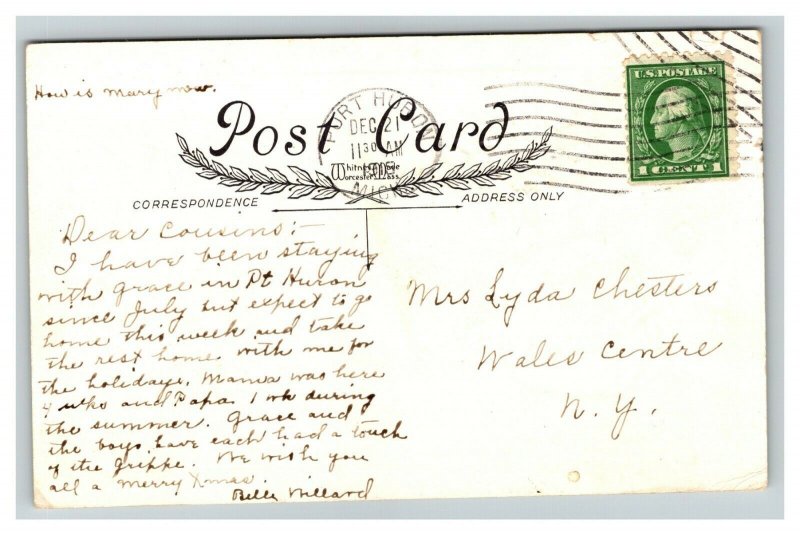 How is Mary now.
Post Card
PORT HURON
DEC 21
11 30 AM
MICH
Whitney Made
Worcester, Mass.
U.S. POSTAGE
1 CENT 1
CORRESPONDENCE
ADDRESS ONLY
Dear Cousins:-
I have been staying
with Grace in Pt Huron
since July but expect to go
home this week and take
the rest home with me for
the holidays. Mama was here
4 wks and Papa 1 wk during
the summer. Grace and
the boys have each had a touch
of the grippe. We wish you
all a Merry Xmas.
Willard
Mrs Lyda Chesters
Wales Centre
N. Y.